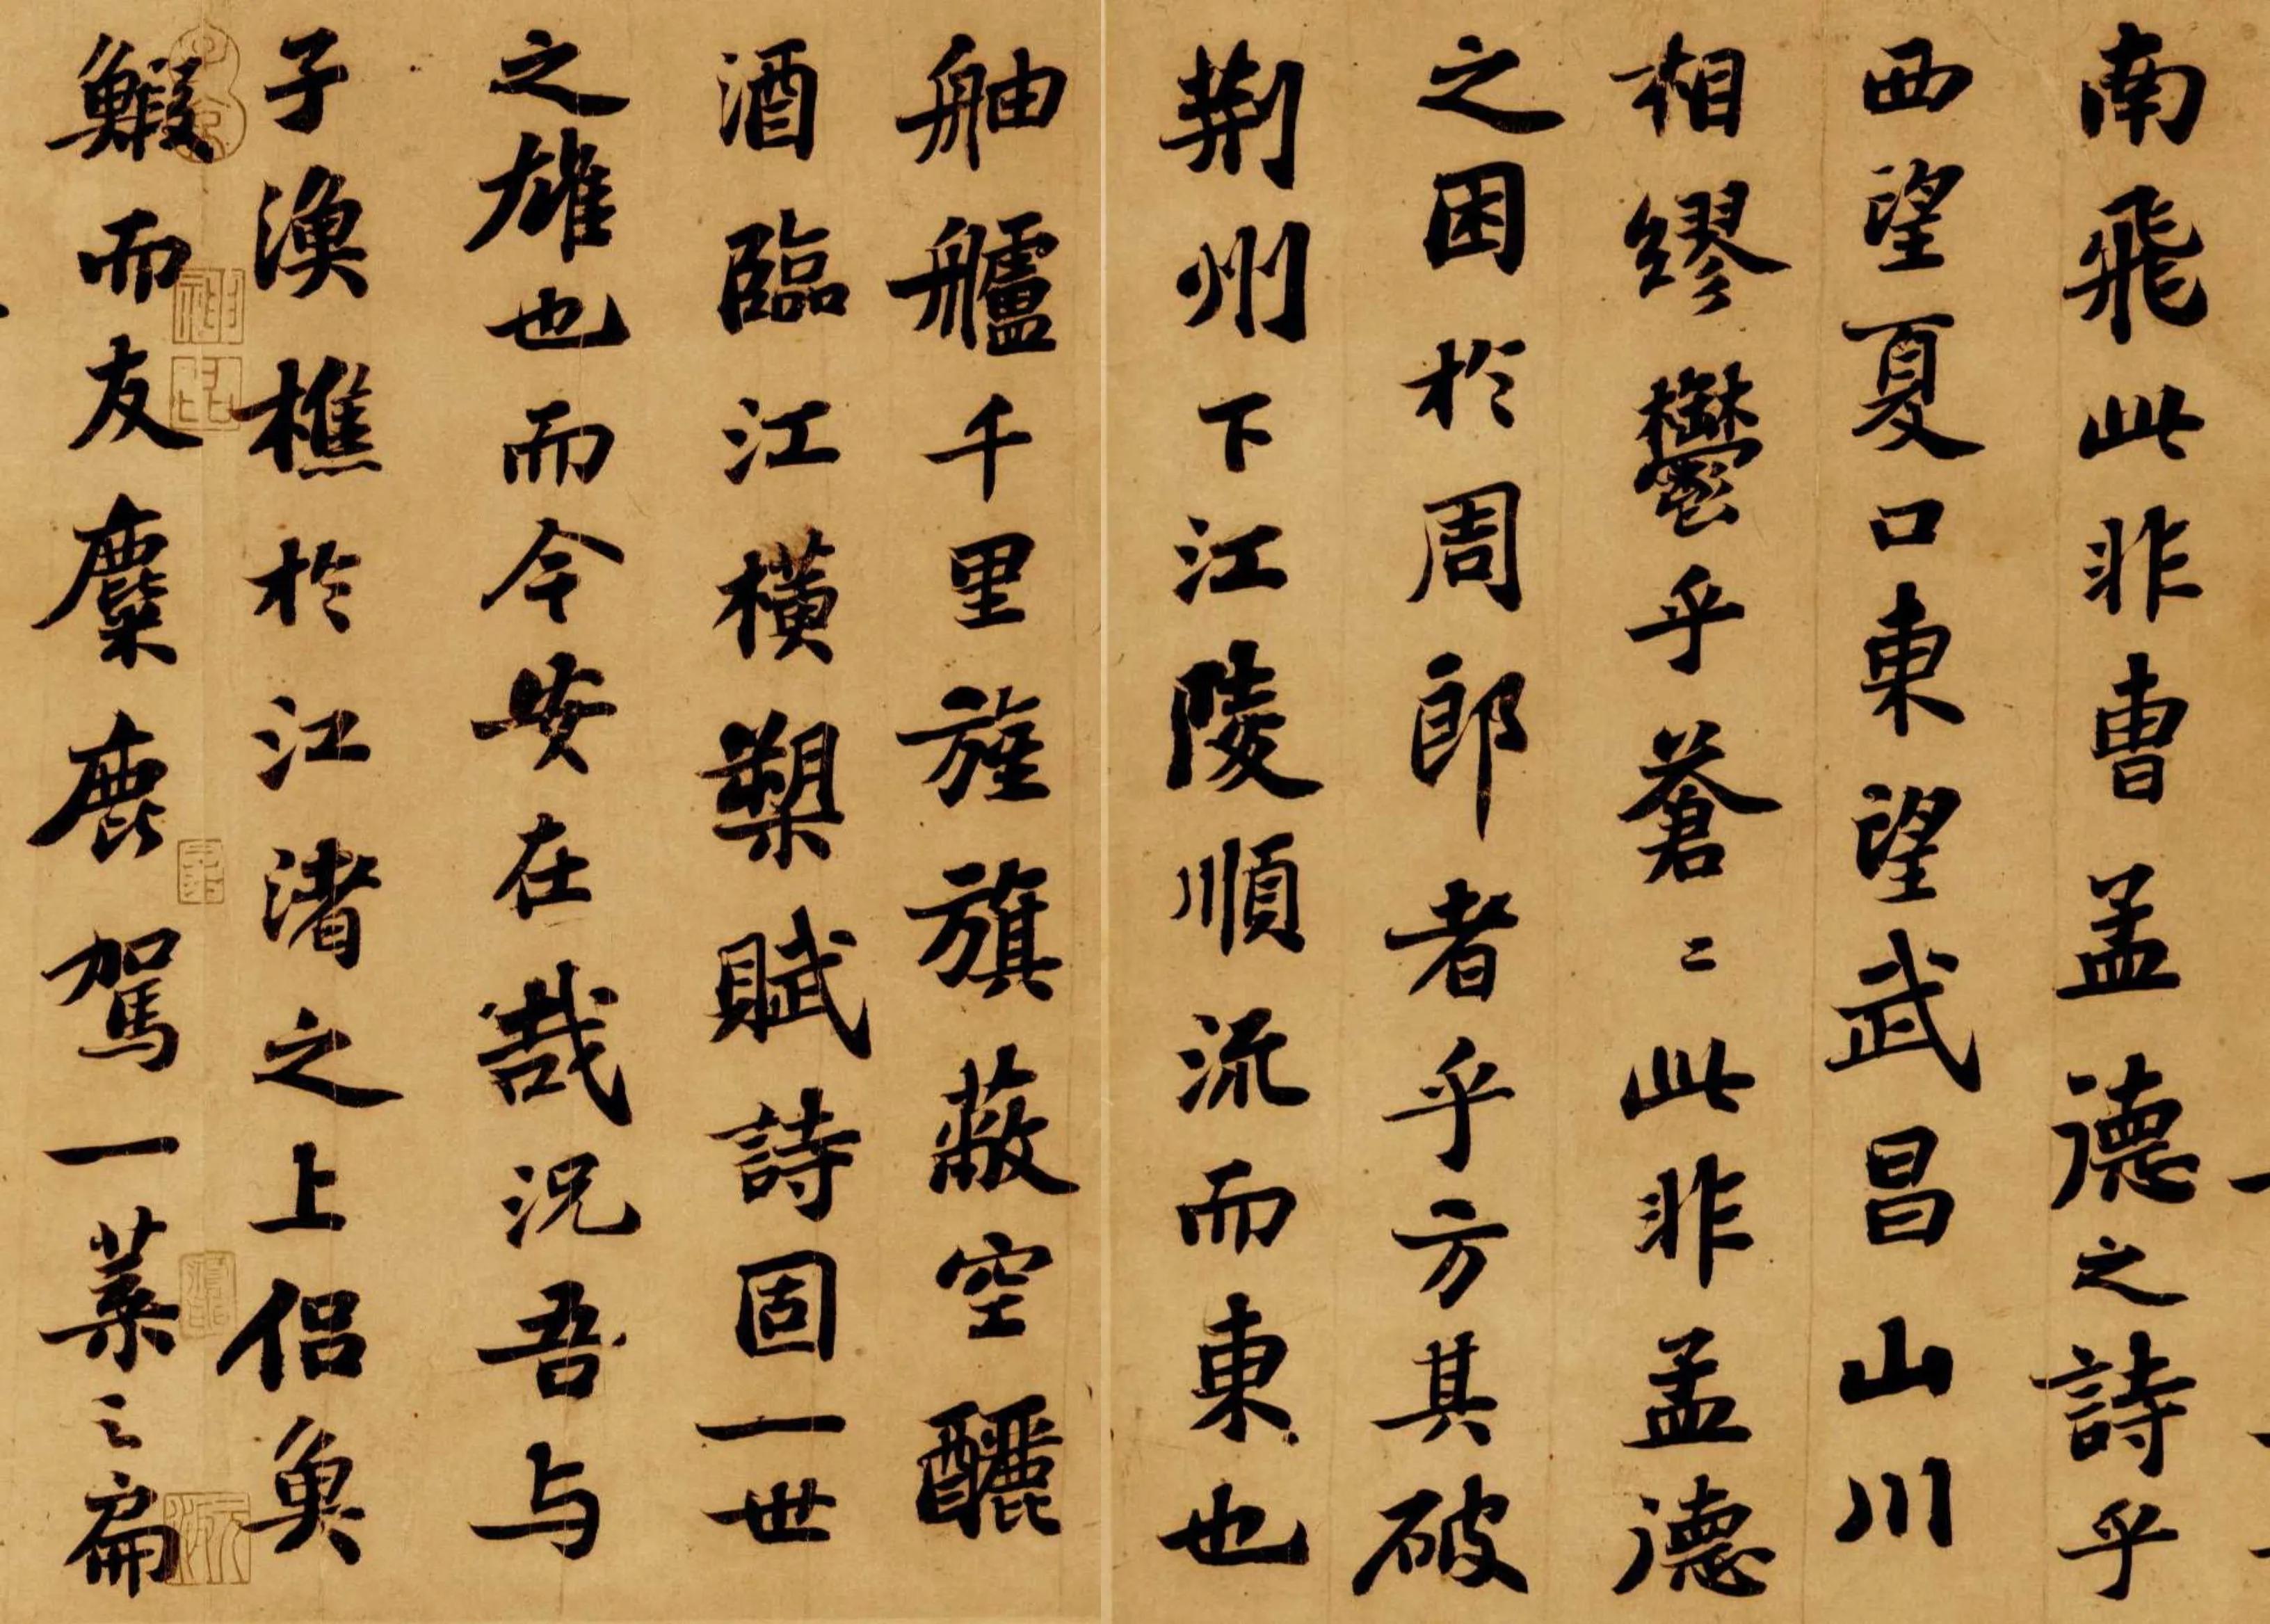 南飛此非曹孟德之詩乎
西望夏口東望武昌山川
相繆鬱乎蒼〻此非孟德
之困於周郎者乎方其破
荊州下江陵順流而東也
舳艫千里旌旗蔽空釃
酒臨江橫槊賦詩固一世
之雄也而今安在哉況吾与
子漁樵於江渚之上侶魚
鰕而友麋鹿駕一葉之扁